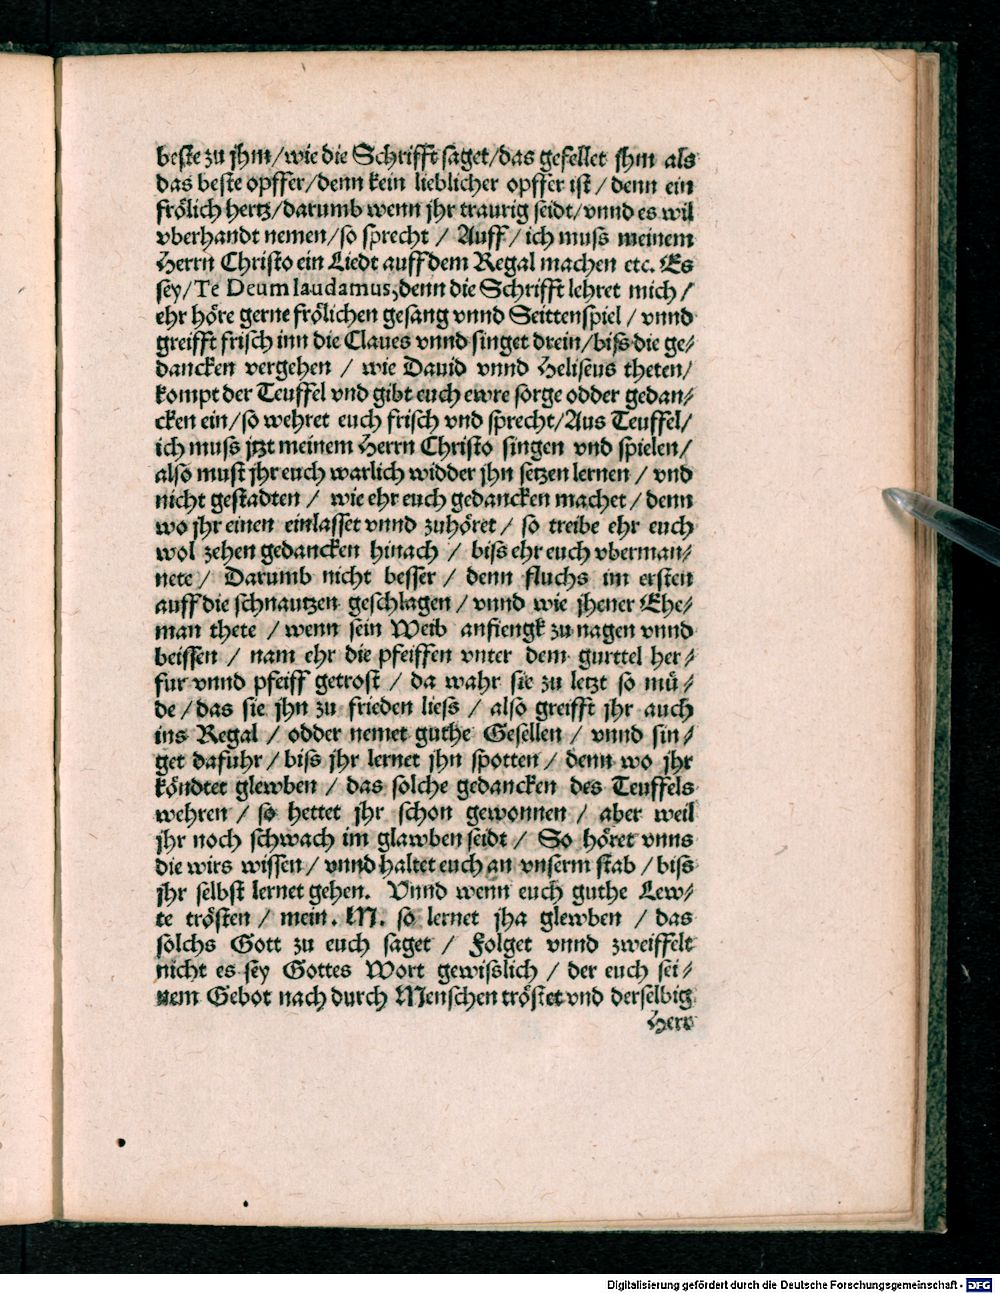 beste zu jhm/wie die Schrifft saget/das gefellet jhm als
das beste opffer/denn kein lieblicher opffer ist / denn ein
frölich hertz/darumb wenn jhr traurig seidt/vnnd es wil
vberhandt nemen/so sprecht / Auff / ich muss meinem
Herrn Christo ein Liedt auff dem Regal machen etc. Es
sey/Te Deum laudamus, denn die Schrifft lehret mich /
ehr höre gerne frölichen gesang vnnd Seittenspiel / vnnd
greifft frisch inn die Claues vnnd singet drein/biss die ge⸗
dancken vergehen / wie Dauid vnnd Heliseus theten/
kompt der Teuffel vnd gibt euch ewre sorge odder gedan⸗
cken ein/so wehret euch frisch vnd sprecht/Aus Teuffel/
ich muss jtzt meinem Herrn Christo singen vnd spielen/
also must jhr euch warlich widder jhn setzen lernen / vnd
nicht gestadten / wie ehr euch gedancken machet / denn
wo jhr einen einlasset vnnd zuhöret / so treibe ehr euch
wol zehen gedancken hinach / biss ehr euch vberman⸗
nete / Darumb nicht besser / denn fluchs im ersten
auff die schnautzen geschlagen / vnnd wie jhener Ehe⸗
man thete / wenn sein Weib anfiengk zu nagen vnnd
beissen / nam ehr die pfeiffen vnter dem gurttel her⸗
fur vnnd pfeiff getrost / da wahr sie zu letzt so mü⸗
de / das sie jhn zu frieden liess / also greifft jhr auch
ins Regal / odder nemet guthe Gesellen / vnnd sin⸗
get dafuhr / biss jhr lernet jhn spotten / denn wo jhr
köndtet glewben / das solche gedancken des Teuffels
wehren / so hettet jhr schon gewonnen / aber weil
jhr noch schwach im glawben seidt / So höret vnns
die wirs wissen / vnnd haltet euch an vnserm stab / biss
jhr selbst lernet gehen. Vnnd wenn euch guthe Lew⸗
te trösten / mein. M. so lernet jha glewben / das
solchs Gott zu euch saget / Folget vnnd zweiffelt
nicht es sey Gottes Wort gewisslich / der euch sei⸗
nem Gebot nach durch Menschen tröstet vnd derselbig
Herr
Digitalisierung gefördert durch die Deutsche Forschungsgemeinschaft - DFG